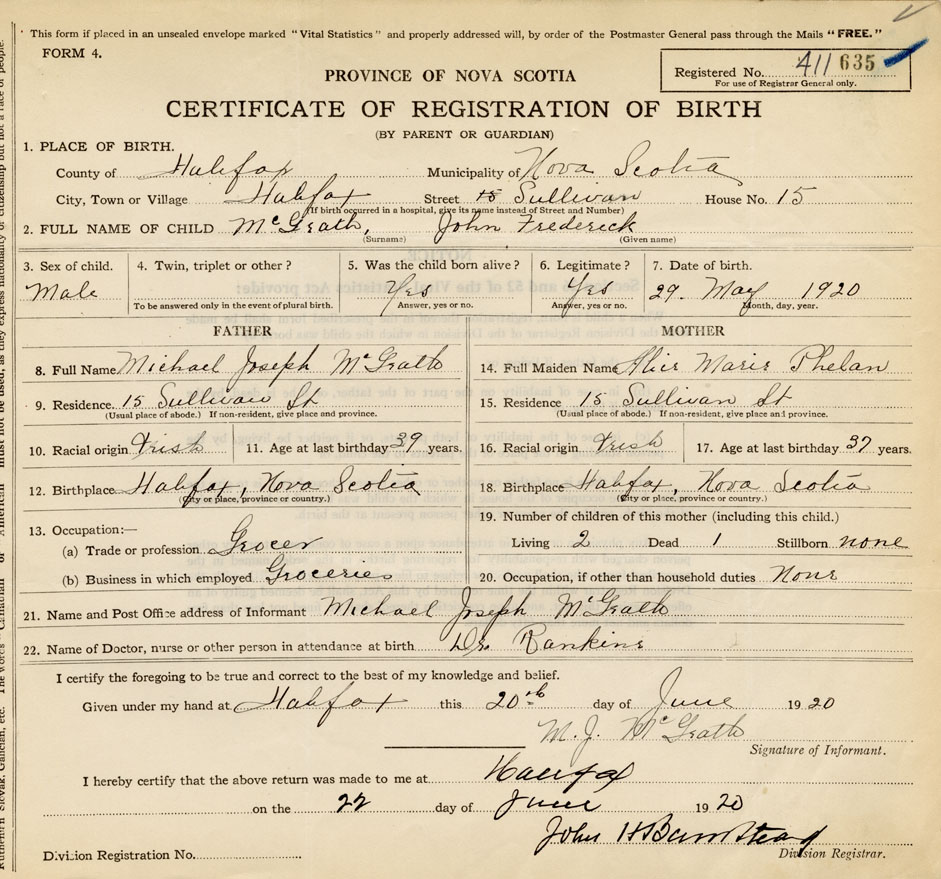 This form if placed in an unsealed envelope marked "Vital Statistics" and properly addressed will, by order of the Postmaster General pass through the Mails "FREE."
FORM 4.
Registered No. 411 635
For use of Registrar General only.
PROVINCE OF NOVA SCOTIA
CERTIFICATE OF REGISTRATION OF BIRTH
(BY PARENT OR GUARDIAN)
1. PLACE OF BIRTH.
County of Halifax Municipality of Nova Scotia
City, Town or Village Halifax Street 15 Sullivan House No. 15
(If birth occurred in a hospital, give its name instead of Street and Number)
2. FULL NAME OF CHILD McGrath, John Frederick
(Surname) (Given name)
3. Sex of child. 4. Twin, triplet or other? 5. Was the child born alive? 6. Legitimate? 7. Date of birth.
Male Yes Yes 29. May 1920
To be answered only in the event of plural birth. Answer, yes or no. Answer, yes or no. Month, day, year.
FATHER MOTHER
8. Full Name Michael Joseph McGrath 14. Full Maiden Name Alice Marie Phelan
9. Residence. 15 Sullivan St 15. Residence. 15 Sullivan St
(Usual place of abode.) If non-resident, give place and province. (Usual place of abode.) If non-resident, give place and province.
10. Racial origin Irish 11. Age at last birthday 39 years. 16. Racial origin Irish 17. Age at last birthday 37 years.
12. Birthplace Halifax, Nova Scotia 18. Birthplace Halifax, Nova Scotia
(City or place, province or country.) (City or place, province or country.)
13. Occupation:— 19. Number of children of this mother (including this child.)
(a) Trade or profession Grocer Living 2 Dead 1 Stillborn none
(b) Business in which employed Groceries 20. Occupation, if other than household duties None
21. Name and Post Office address of Informant Michael Joseph McGrath
22. Name of Doctor, nurse or other person in attendance at birth. Dr. Rankine
I certify the foregoing to be true and correct to the best of my knowledge and belief.
Given under my hand at Halifax this 20th day of June 1920
M. J. McGrath
Signature of Informant.
I hereby certify that the above return was made to me at Halifax
on the 22 day of June 1920
John H Barnstead
Division Registrar.
Division Registration No.